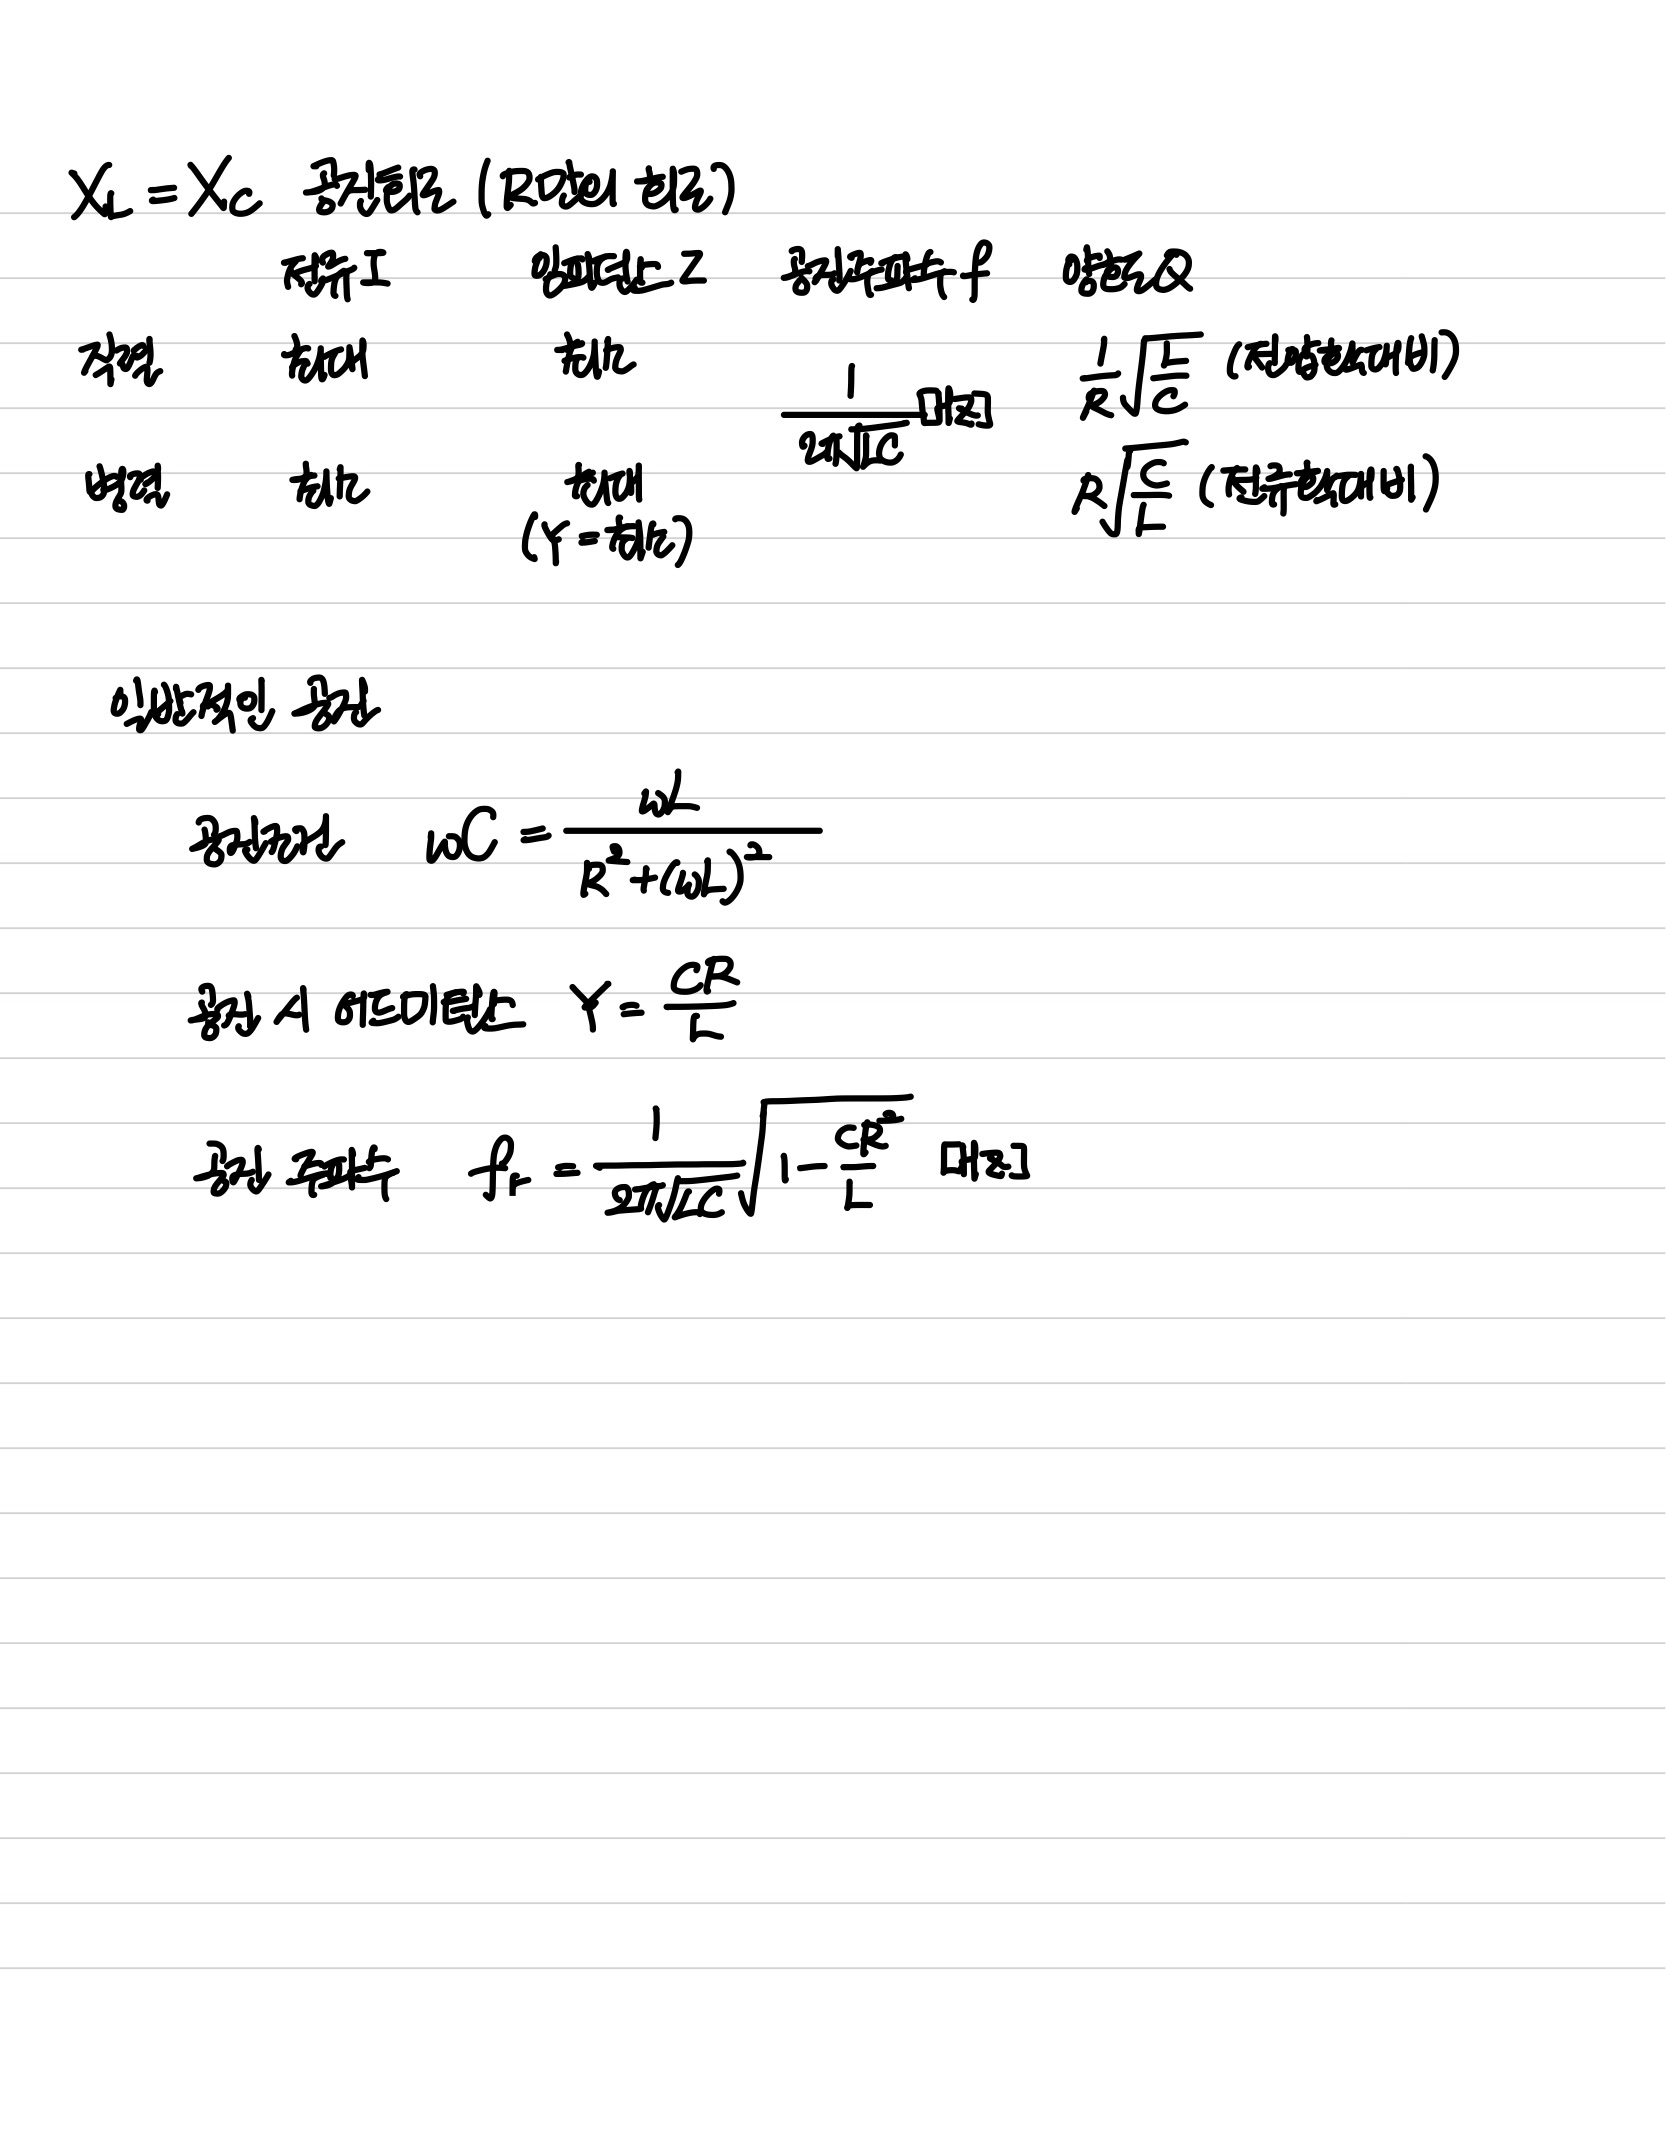 X_L = X_C 공진회로 (R만의 회로)
전류 I 임피던스 Z 공진주파수 f 양호도 Q
직렬 최대 최소 1/(2π√(LC)) [Hz] 1/R √(L/C) (전압확대비)
병렬 최소 최대 R√(C/L) (전류확대비)
(Y = 최소)
일반적인 공진
공진조건 ωC = ωL/(R²+(ωL)²)
공진 시 어드미턴스 Y = CR/L
공진 주파수 f_r = 1/(2π√(LC)) √(1 - CR²/L) [Hz]